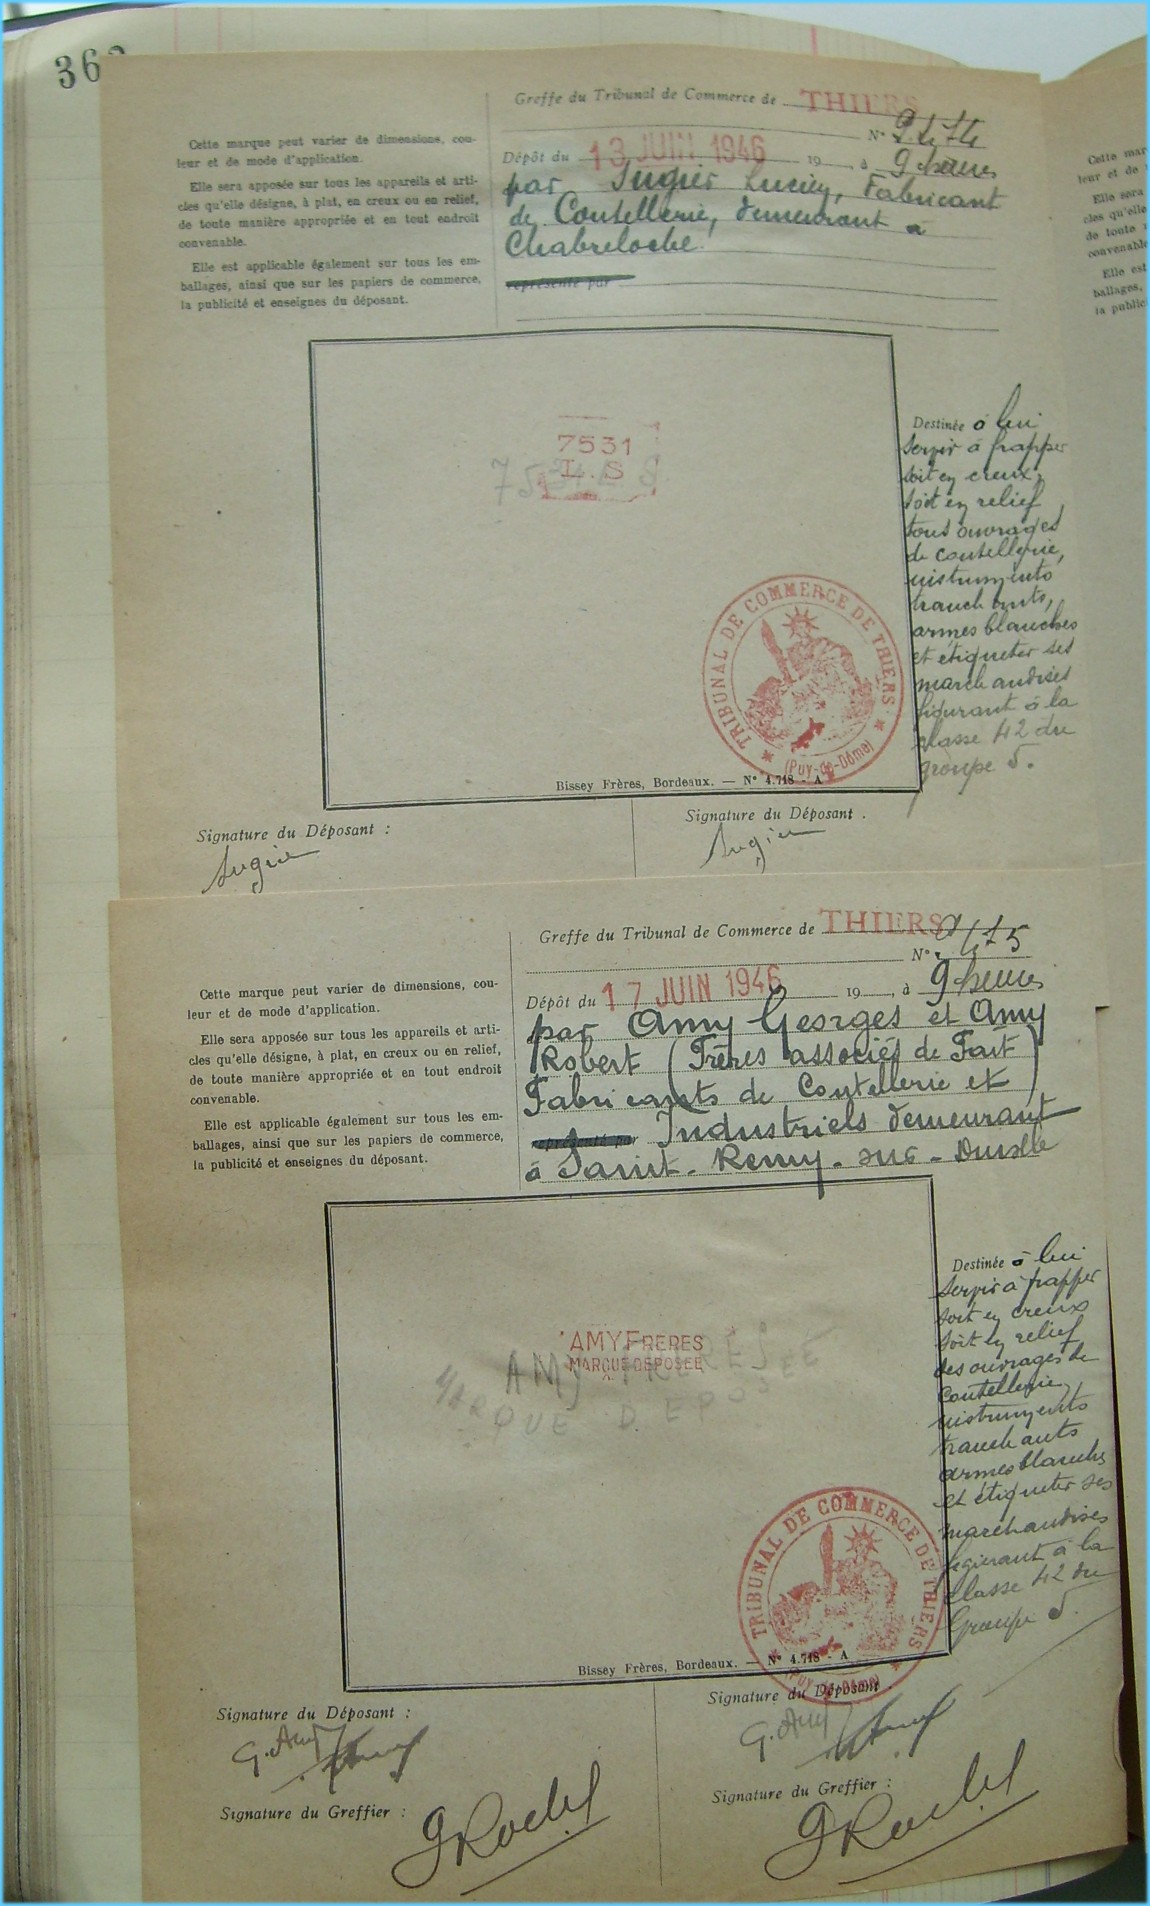 Greffe du Tribunal de Commerce de THIERS
Nº
Cette marque peut varier de dimensions, cou-
leur et de mode d'application.
Elle sera apposée sur tous les appareils et arti-
cles qu'elle désigne, à plat, en creux ou en relief,
de toute manière appropriée et en tout endroit
convenable.
Elle est applicable également sur tous les em-
ballages, ainsi que sur les papiers de commerce,
la publicité et enseignes du déposant.
Dépôt du 13 JUIN 1946 19 à 9 heures
par Lucien, Fabricant
de Coutellerie, demeurant à
Chabreloche.
représenté par
7531
L.S
Destinée à lui
servir à frapper
soit en creux,
soit en relief
tous ouvrages
de coutellerie,
instruments
tranchants,
armes blanches
et étiqueter ses
marchandises
figurant à la
classe 42 du
groupe 5.
TRIBUNAL DE COMMERCE DE THIERS
(Puy-de-Dôme)
Bissey Frères, Bordeaux. — Nº 4.718 - A
Signature du Déposant :
Signature du Déposant .
Greffe du Tribunal de Commerce de THIERS
Nº
Cette marque peut varier de dimensions, cou-
leur et de mode d'application.
Elle sera apposée sur tous les appareils et arti-
cles qu'elle désigne, à plat, en creux ou en relief,
de toute manière appropriée et en tout endroit
convenable.
Elle est applicable également sur tous les em-
ballages, ainsi que sur les papiers de commerce,
la publicité et enseignes du déposant.
Dépôt du 17 JUIN 1946 19 , à 9 heures
par Amy Georges et Amy
Robert (Frères associés de Fait)
Fabricants de Coutellerie et
représenté par Industriels demeurant
à Saint-Remy-sur-Durolle
AMY FRERES
MARQUE DEPOSEE
AMY FRERES
MARQUE DEPOSEE
Destinée à lui
servir à frapper
soit en creux
soit en relief
des ouvrages de
Coutellerie,
instruments
tranchants
armes blanches
et étiqueter ses
marchandises
figurant à la
Classe 42 du
Groupe 5.
TRIBUNAL DE COMMERCE DE THIERS
(Puy-de-Dôme)
Bissey Frères, Bordeaux. — Nº 4.718 - A
Signature du Déposant :
G. Amy
Signature du Déposant .
G. Amy
Signature du Greffier :
Signature du Greffier :